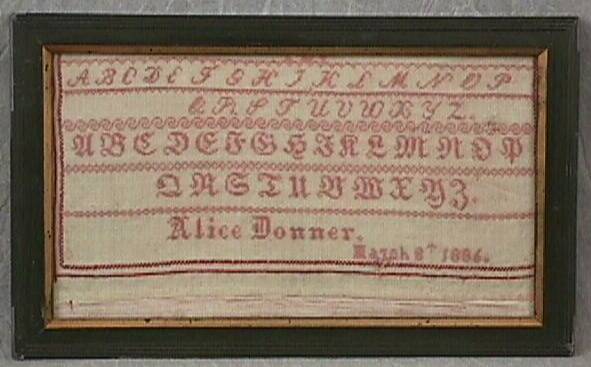 A B C D E F G H I K L M N O P
Q R S T U V W X Y Z.
A B C D E F G H I K L M N O P
Q R S T U V W X Y Z.
Alice Donner.
March 8th 1886.